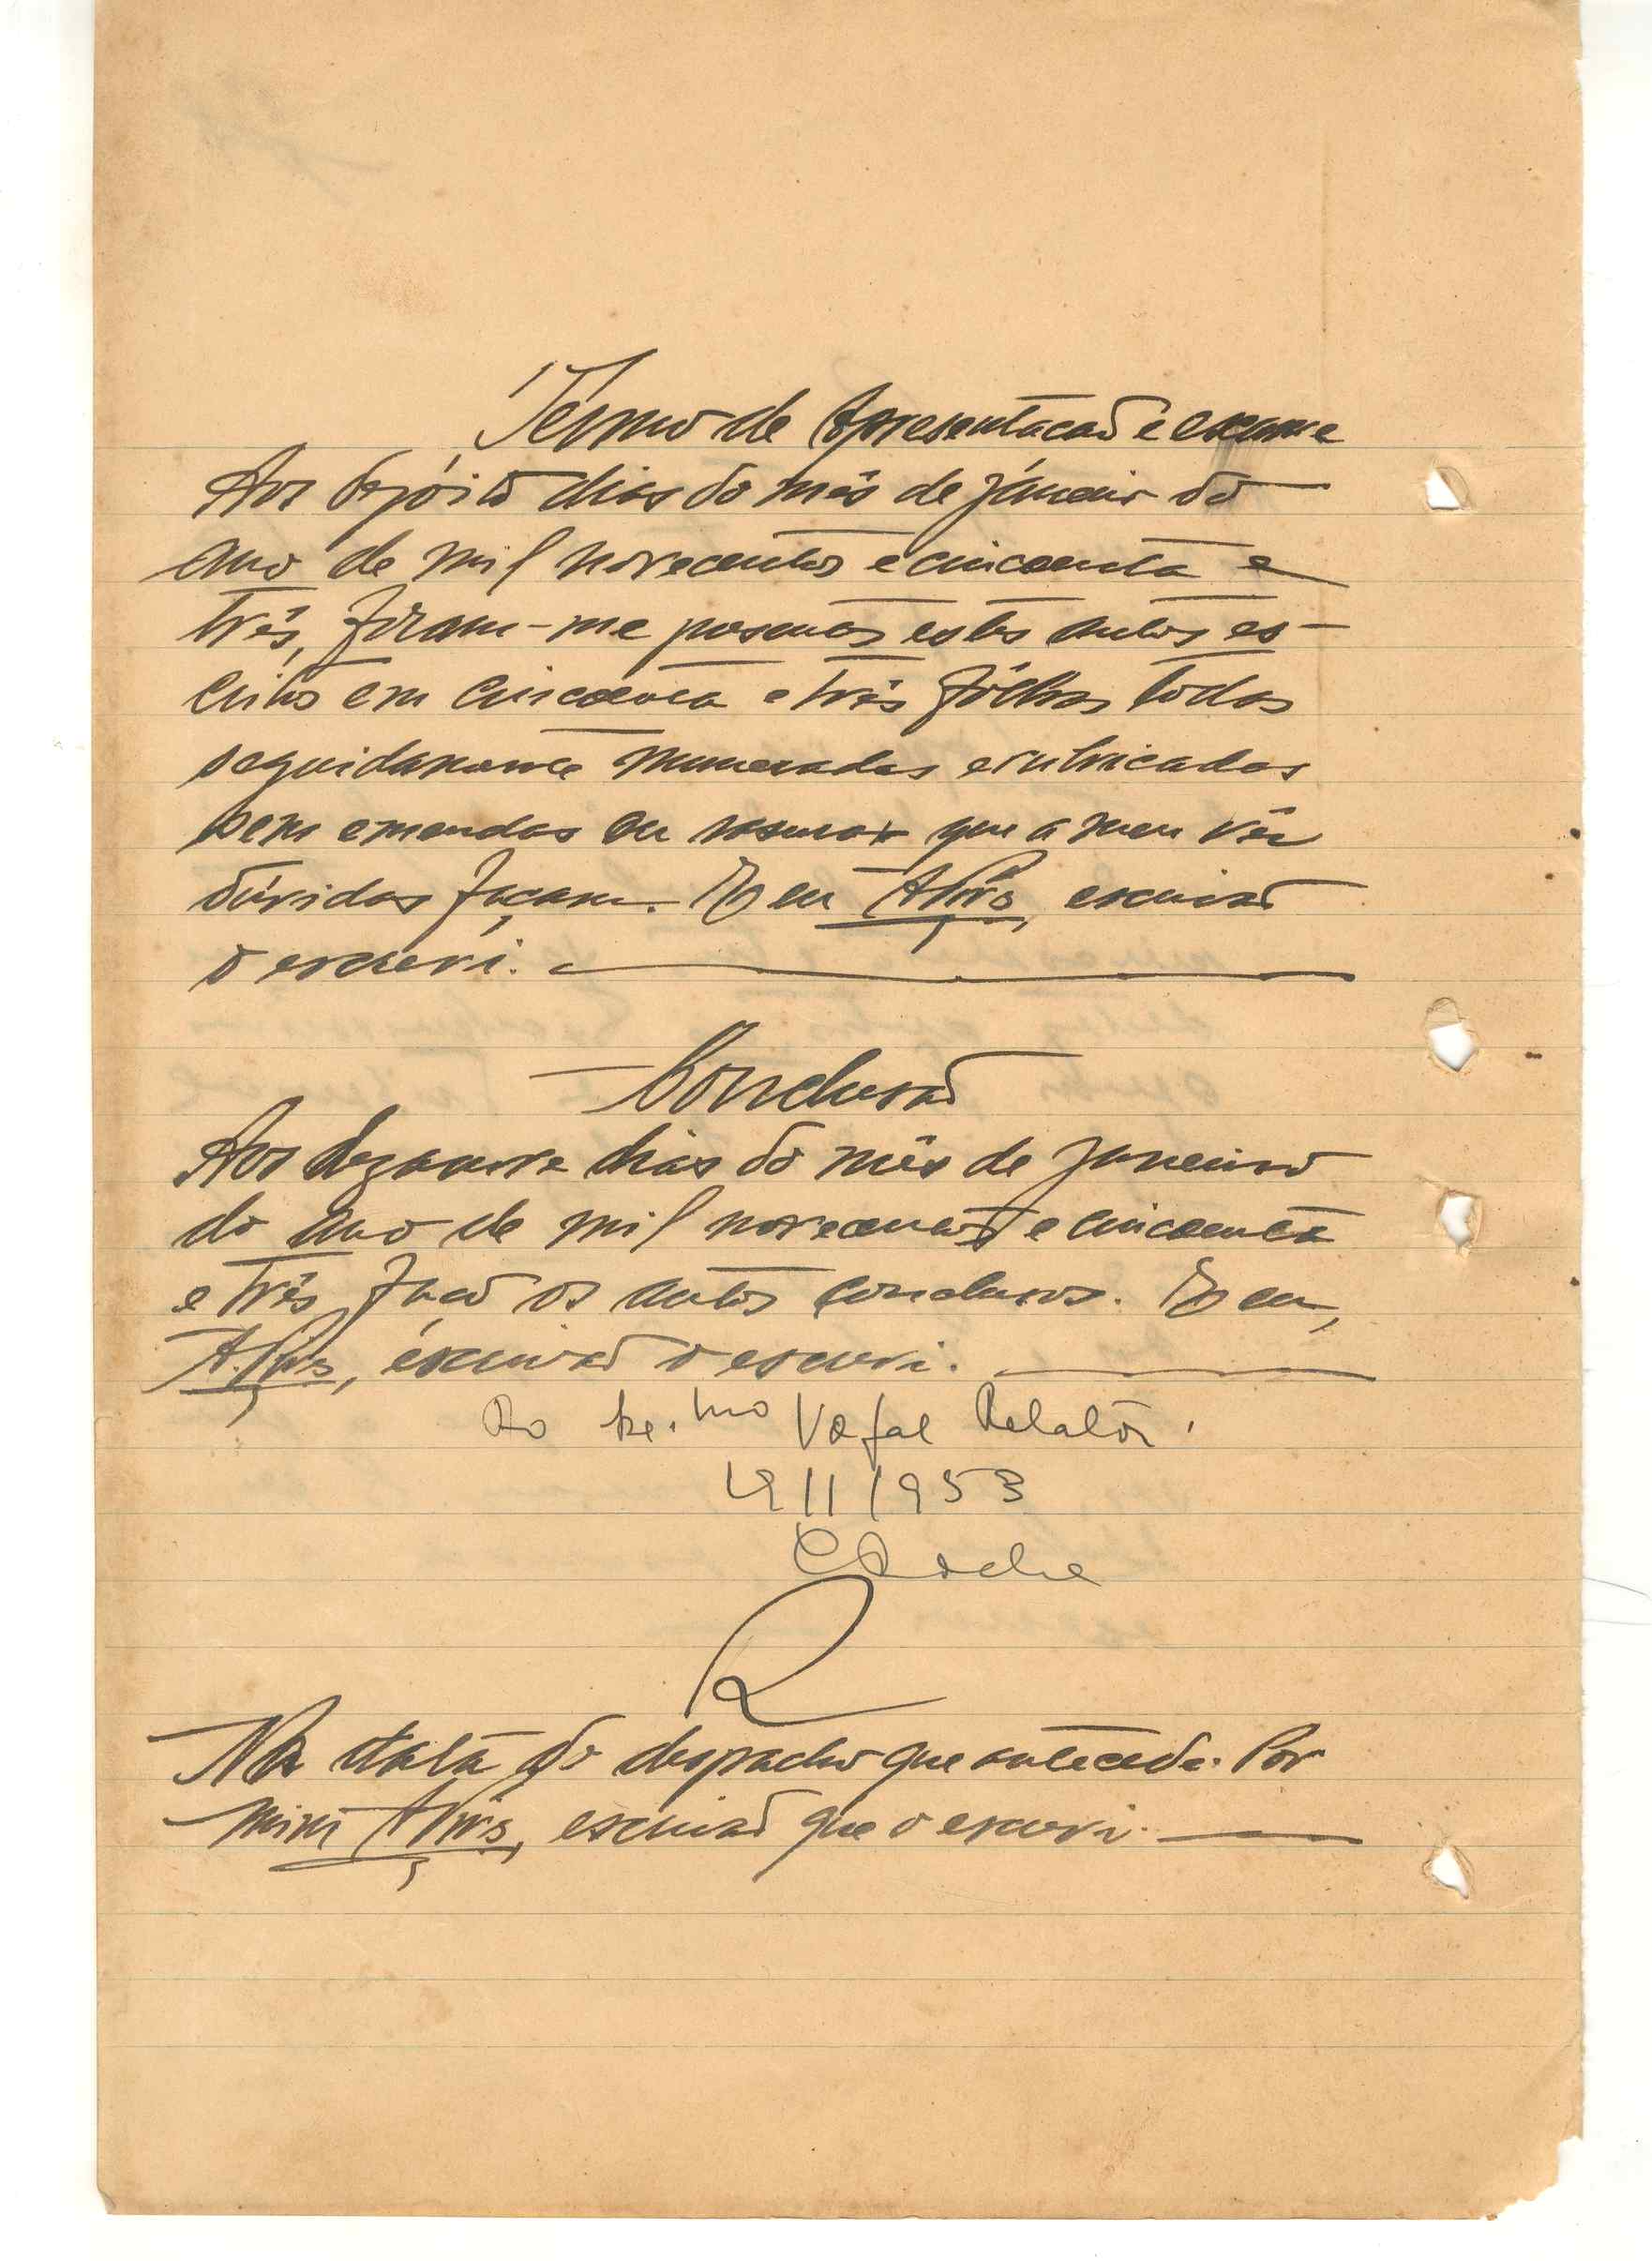 Têrmo de Apresentação e exame
Aos dezóito dias do mês de Janeiro do
ano de mil novecentos e cincoenta e
três, foram-me presentes estes autos es-
critos em cincoenta e três fôlhas todas
seguidamente numeradas e rubricadas
sem emendas ou rasuras que a meu vêr
dúvidas façam. E eu APires, escrivão
o escrevi.
Conclusão
Aos dezanove dias do mês de Janeiro
do ano de mil novecentos e cincoenta
e três, faço os autos conclusos. E eu,
A.Pires, escrivão o escrevi.
Ao Ex.mo Vogal Relator.
19/1/1953
CRocha
R
Na data do despacho que antecede. Por
mim APires, escrivão que o escrevi.